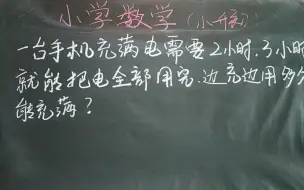 小学数学(小升初)
一台手机充满电需要2小时.3小时
就能把电全部用完.边充边用多久
能充满?